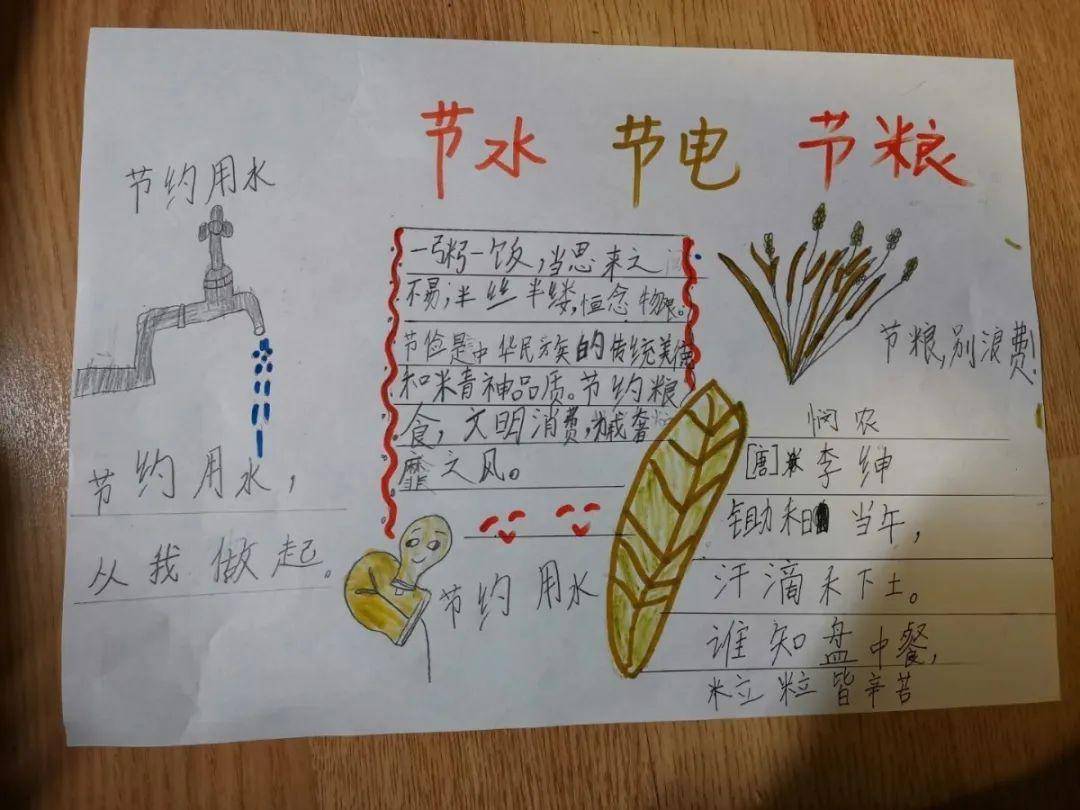 节水 节电 节粮
节约用水
节约用水，
从我做起。
一粥一饭，当思来之
不易；半丝半缕，恒念物
节俭是中华民族的传统美德
和精神品质。节约粮
食，文明消费，减奢
靡之风。
节约用水
节粮，别浪费！
悯农
[唐]李绅
锄禾日当午，
汗滴禾下土。
谁知盘中餐，
粒粒皆辛苦